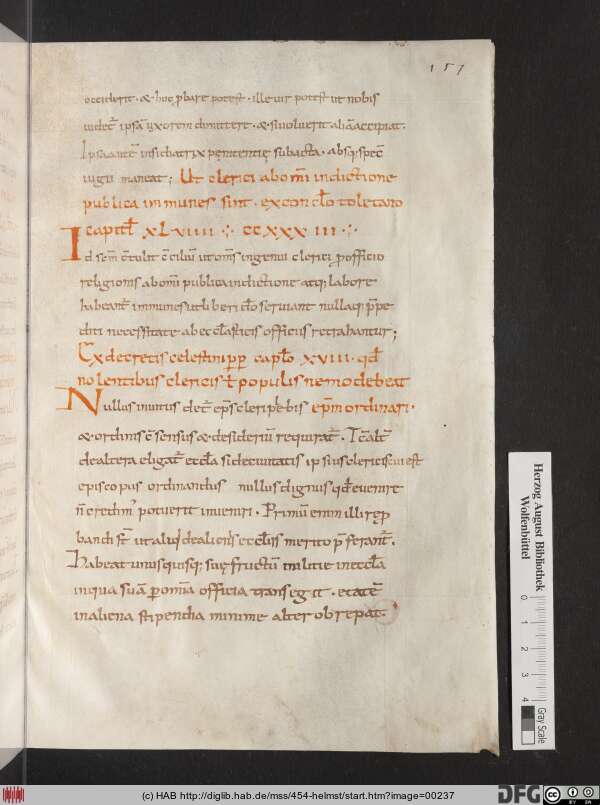 157
occiderit · & hoc ꝓbare potest · ille uir potest ut nobis
uidet᷒ ipsā uxorem dimittere · & si uoluerit aliā accipiat ·
Ipsa aut̄ insidiatrix pęnitentię subacta · absq; spe c̄
iugii maneat; Ut clerici ab om̄i indictione
publica inmunes sint · ex concl̄o toletano
capitl̄ XLVIIII ·:· CCXXXIII ·:·
Id sc̄m c̄tulit c̄ciliū ut om̄s ingenui clerici ꝓ officio
religionis ab om̄i publica indictione atq; labore
habeant᷒ inmunes ut liberi d̄o seruiant nullaq; p̄pe
diti necessitate ab eccl̄asticis officiis retrahantur;
Ex decretis celestini p̄p̄ capl̄o XVIII · qđ
nolentibus clericis t̄ populis nemo debeat
Nullus inuitus det᷒ ep̄s cleri plebis ep̄m ordinari ·
& ordinis c̄sensus & desideriū requirat᷒ · Tc̄ alt᷒
de altera eligat᷒ eccl̄a si de ciuitatis ipsius clericis cui est
episcopus ordinandus nullus dignus qđ euenire
n̄ credim᷒ potuerit inueniri · Primū enim illi reꝓ
bandi st̄ ut aliqđ de alienis eccl̄iis merito p̄ferant᷒ ·
Habeat unusquisq; suę fructū militie in eccl̄a
in qua suā ꝑ om̄ia officia transegit · etatē
in aliena stipendia minime alter obrepat ·
Herzog August Bibliothek
Wolfenbüttel
0 1 2 3 4
Gray Scale
(c) HAB http://diglib.hab.de/mss/454-helmst/start.htm?image=00237
DFG
cc BY SA